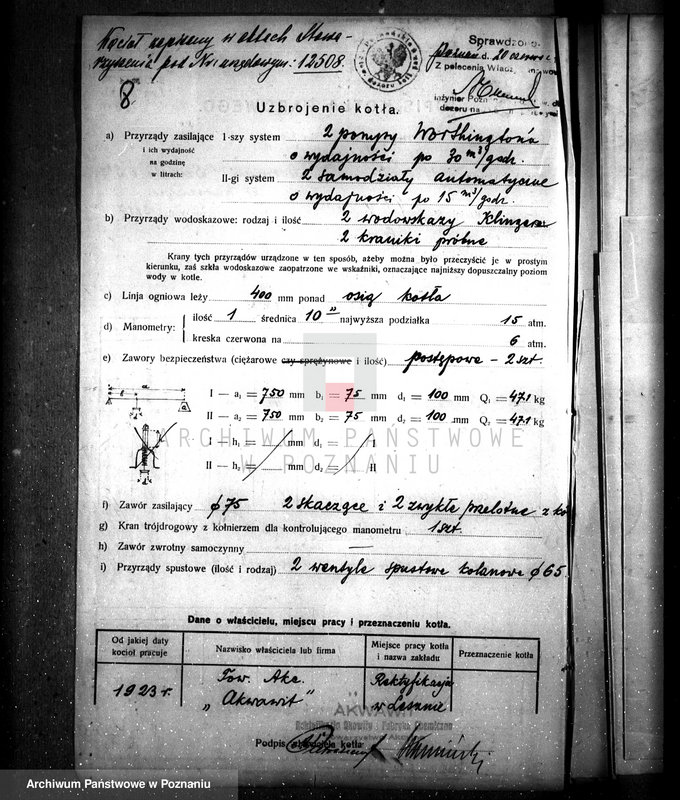 Kocioł wpisany w aktach Stowa-
rzyszenia pod Nr. urzędowym: 12508.
Sprawdzono.
Poznań d. 20 czerwca
Z polecenia Władz
inżynier Pozn
dozoru na
8.
Uzbrojenie kotła.
a) Przyrządy zasilające I-szy system 2 pompy Worthingtona
i ich wydajność
na godzinę o wydajności po 30 m³/godz.
w litrach: II-gi system 2 samodziały automatyczne
o wydajności po 15 m³/godz.
b) Przyrządy wodoskazowe: rodzaj i ilość 2 wodowskazy Klingera
2 kraniki próbne
Krany tych przyrządów urządzone w ten sposób, ażeby można było przeczyścić je w prostym
kierunku, zaś szkła wodoskazowe zaopatrzone we wskaźniki, oznaczające najniższy dopuszczalny poziom
wody w kotle.
c) Linja ogniowa leży 400 mm ponad osią kotła
d) Manometry: ilość 1 średnica 10" najwyższa podziałka 15 atm.
kreska czerwona na 6 atm.
e) Zawory bezpieczeństwa (ciężarowe czy sprężynowe i ilość) postępowe - 2 szt.
I — a₁ = 750 mm b₁ = 75 mm d₁ = 100 mm Q₁ = 47.1 kg
II — a₂ = 750 mm b₂ = 75 mm d₂ = 100 mm Q₂ = 47.1 kg
I — h₁ = mm d₁ = I
II — h₂ = mm d₂ = II
ARCHIWUM PAŃSTWOWE
W POZNANIU
f) Zawór zasilający ϕ 75 2 skaczące i 2 zwykłe przelotne z
g) Kran trójdrogowy z kołnierzem dla kontrolującego manometru 1 szt.
h) Zawór zwrotny samoczynny —
i) Przyrządy spustowe (ilość i rodzaj) 2 wentyle spustowe kolanowe ϕ 65
Dane o właścicielu, miejscu pracy i przeznaczeniu kotła.
Od jakiej daty kocioł pracuje
Nazwisko właściciela lub firma
Miejsce pracy kotła i nazwa zakładu
Przeznaczenie kotła
1923 r.
Tow. Akc. „Akwawit"
Rektyfikacja w Lesznie
AKWAWIT
Rektyfikacja Okowity i Fabryka Chemiczna
Podpis właściciela kotła:
Archiwum Państwowe w Poznaniu